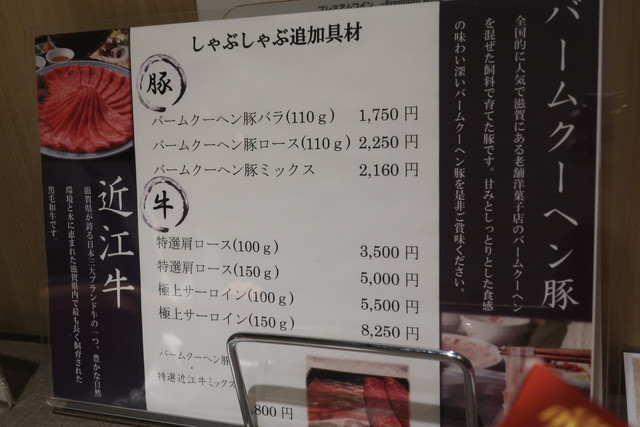 プレミアムワイン
しゃぶしゃぶ追加具材
豚
バームクーヘン豚バラ(110ｇ) 1,750 円
バームクーヘン豚ロース(110ｇ) 2,250 円
バームクーヘン豚ミックス 2,160 円
牛
特選肩ロース(100ｇ) 3,500 円
特選肩ロース(150ｇ) 5,000 円
極上サーロイン(100ｇ) 5,500 円
極上サーロイン(150ｇ) 8,250 円
バームクーヘン豚
・
特選近江牛ミックス
,800 円
バームクーヘン豚
全国的に人気で滋賀にある老舗洋菓子店のバームクーヘン
を混ぜた飼料で育てた豚です。甘みとしっとりとした食感
の味わい深いバームクーヘン豚を是非ご賞味ください。
近江牛
滋賀県が誇る日本三大ブランド牛の一つ。豊かな自然
環境と水に恵まれた滋賀県内で最も長く飼育された
黒毛和牛です。